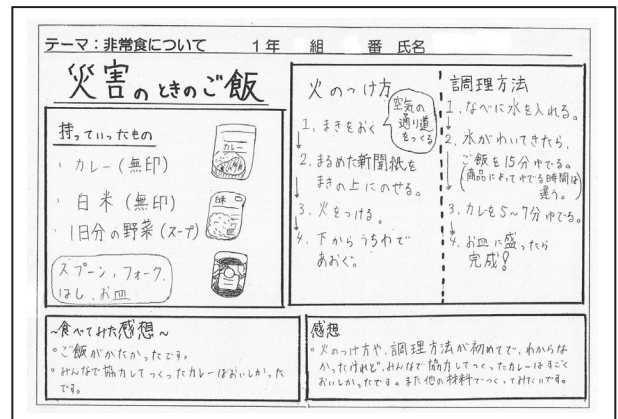 テーマ：非常食について 1年 組 番 氏名
災害のときのご飯
持っていったもの
・カレー(無印)
・白米(無印)
・1日分の野菜(スープ)
スプーン、フォーク、
はし、お皿
カレー
米
火のつけ方
空気の
通り道
をつくる
1、まきをおく
↓
2、まるめた新聞紙を
まきの上にのせる。
↓
3、火をつける。
↓
4、下からうちわで
あおぐ。
調理方法
1、なべに水を入れる。
↓
2、水がわいてきたら、
ご飯を15分ゆでる。
(商品によってゆでる時間は
違う。)
↓
3、カレを5~7分ゆでる。
↓
4、お皿に盛ったら
完成!
~食べてみた感想~
°ご飯がかたかったです。
°みんなで協力してつくったカレーはおいしかった
です。
感想
°火のつけ方や、調理方法が初めてで、わからな
かったけれど、みんなで協力してつくったカレーはすごく
おいしかったです。また他の材料でつくってみたいです。